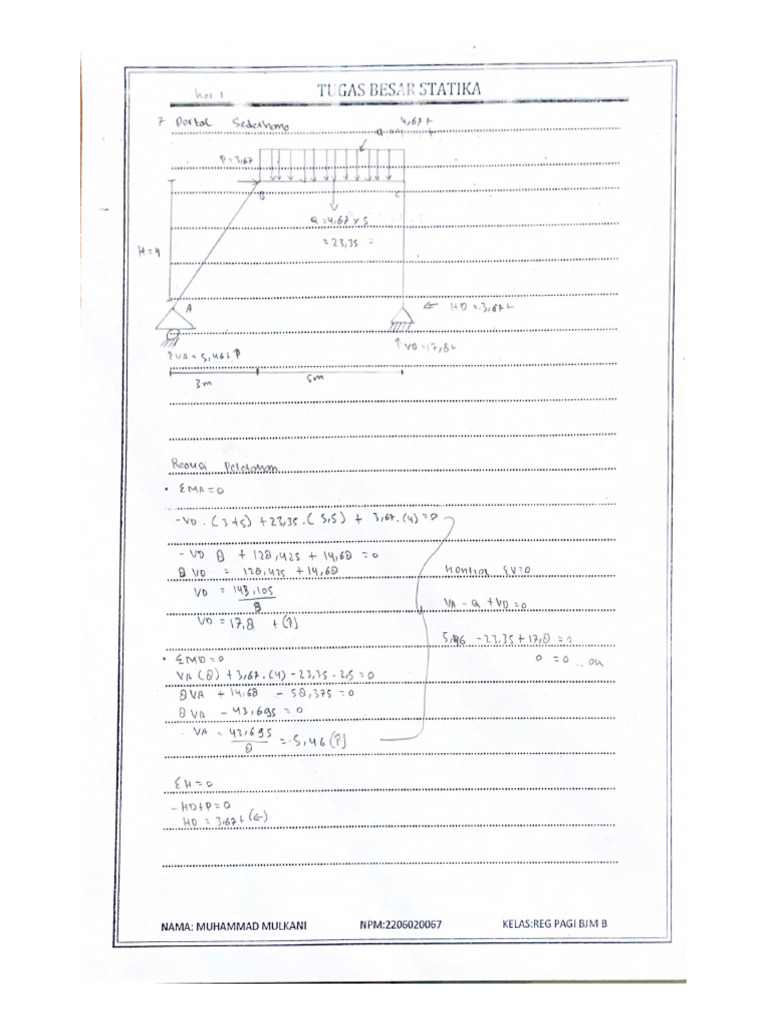 Hal 1
TUGAS BESAR STATIKA
7 Portal Sederhana
4,67 t
P = 3,67
B
C
Q = 4,67 x 5
= 23,35
H = 4
A
← HD = 3,67 t
↑ VA = 5,46 t
↑ VD = 17,8 t
3m
5m
Reaksi
• ΣMA = 0
-VD . (3+5) + 23,35 . (5,5) + 3,67 . (4) = 0
- VD 8 + 128,425 + 14,68 = 0
8 VD = 128,425 + 14,68
VD = 143,105
8
VD = 17,8 t (↑)
Kontrol ΣV=0
VA - Q + VD = 0
5,46 - 23,35 + 17,8 = 0
0 = 0 .. OK
• ΣMD = 0
VA (8) + 3,67 . (4) - 23,35 . 2,5 = 0
8 VA + 14,68 - 58,375 = 0
8 VA - 43,695 = 0
VA = 43,695
8
= 5,46 (↑)
ΣH = 0
- HD + P = 0
HD = 3,67 t (←)
NAMA: MUHAMMAD MULKANI NPM:2206020067 KELAS:REG PAGI BJM B